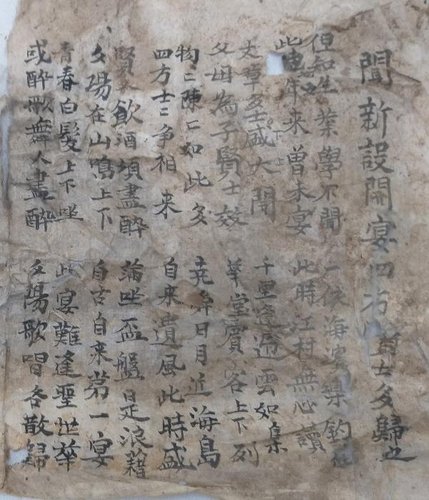 聞新設開宴四方士多歸之
但知生業學不聞 一俠海濱築釣
此年來曾未宴 此時江村無心讀
章多士咸大開 千里逶迤雲如集
父母為子賢士效 華堂賓客上下列
物二陳二如此多 堯舜日月近海島
四方士二爭相來 自來遺風此時盛
賢飲酒頃盡醉 論坐盃盤是浪藉
夕陽在山鳴上下 自古自來第一宴
青春白髮上下坐 此宴難逢聖世華
或醉歌舞人盡醉 夕陽歌唱各散歸